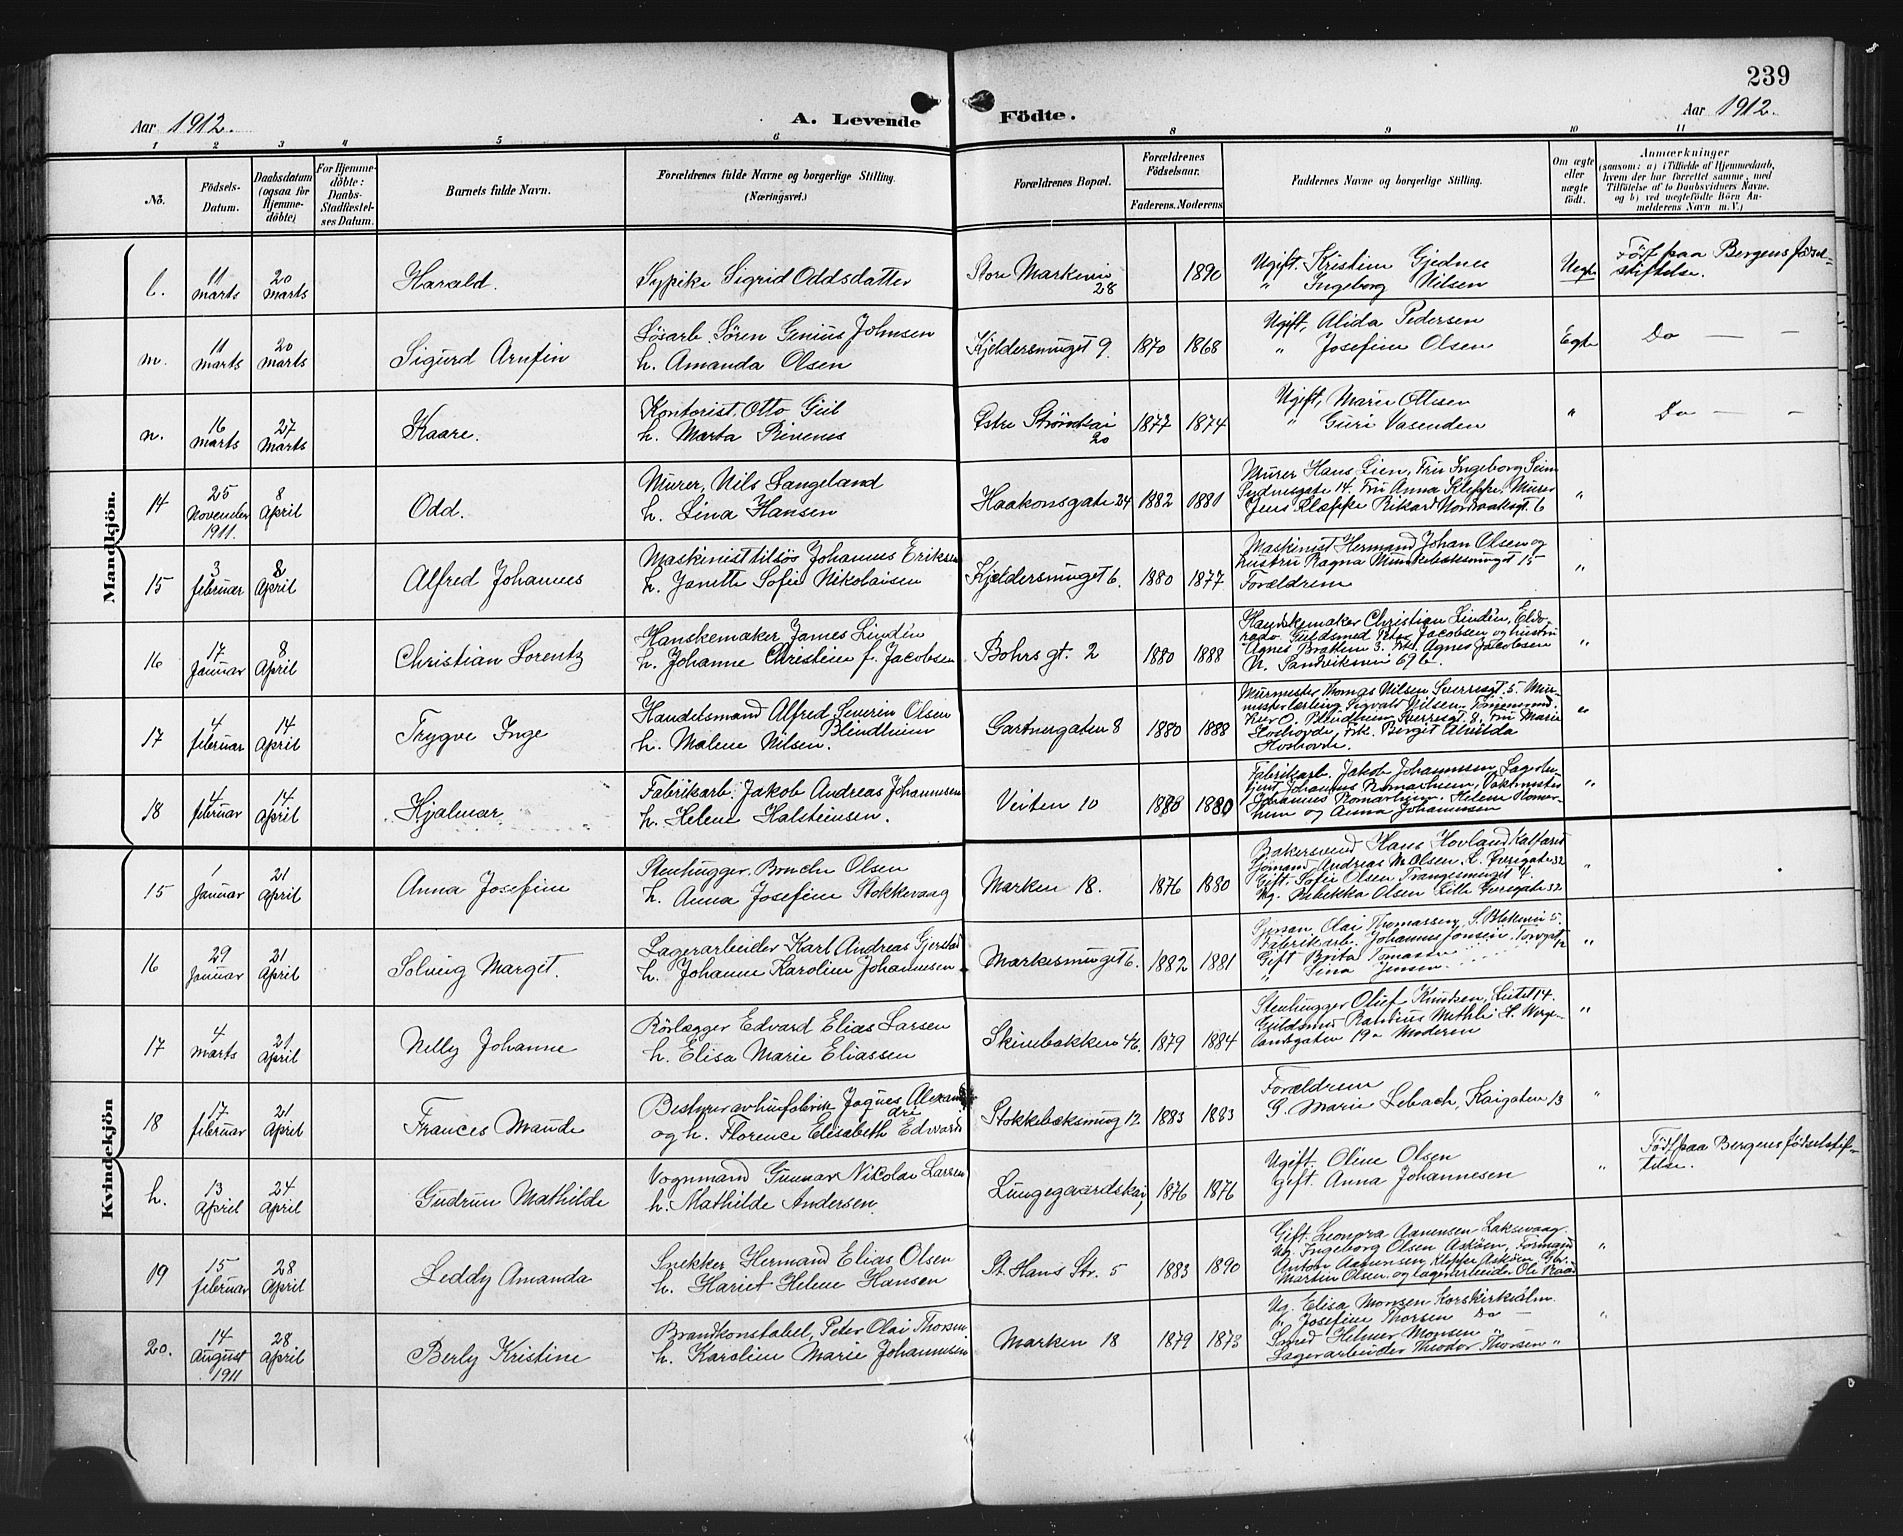 239
Aar 1912.
A. Levende Födte.
Aar 1912.
1 2 3 4 5 6 8 9 10 11
No.
Födsels-Datum.
Daabsdatum (ogsaa for Hjemme-döbte)
For Hjemme-döbte: Daabs-Stadfæstel-ses Datum.
Barnets fulde Navn.
Forældrenes fulde Navne og borgerlige Stilling.
(Næringsvei.)
Forældrenes Bopæl.
Forældrenes Födselsaar.
Faderens. Moderens.
Faddernes Navne og borgerlige Stilling.
Om ægte eller uægte födt.
Anmærkninger
(saasom: a) i Tilfælde af Hjemmedaab, hvem der har forrettet samme, med Tilföielse af to Daabsvidners Navne, og b) ved uægtefödte Börn An-melderens Navn m.V.)
Mandkjön.
l. 11 Marts 20 Marts Harald. Sypike Sigrid Oddsdatter Store Markevei 28 1890 Ugift. Kristine Gjednes
" Ingeborg Nilsen Uegte Födt paa Bergens födsels-
stiftelse.
m. 11 Marts 20 Marts Sigurd Arnfin Løsarb. Sören Genius Johnsen
h. Amanda Olsen Kjeldersmuget 9. 1870 1868 Ugift, Alida Pedersen
" Josefine Olsen Egte Do —
n. 16 Marts 27 Marts Kaare. Kontorist. Otto Giil
h. Marta Rivenes Østre Strømkai 20 1877 1874 Ugift, Marie Ottesen
" Guri Vasenden " Do — -
14 25 November 1911. 8 April Odd. Murer, Nils Langeland
h. Lina Hansen Haakonsgate 24 1882 1881 Murer Hans Lien, Fru Ingeborg Seim
Sydnesgate 14. Fru Anna Kleppe, Murer
Jens Kleppe Rikard Nordraaksgt. 6 "
15 3 Februar 8 April Alfred Johannes Maskinist tilsøs Johannes Eriksen
h. Janette Sofie Nikolaisen Kjeldersmuget 6. 1880 1877 Maskinist Hermand Johan Olsen og
hustru Ragna Munkebæksmuget 15
Forældrene "
16 17 Januar 8 April Christian Lorentz Hanskemaker James Lindén
h. Johanne Christine f. Jacobsen Bohrs gt. 2 1880 1888 Handskemaker Christian Lindén, Eldo-
rado Guldsmed Peter Jacobsen og hustru
Agnes Bratten 3. Frk. Agnes Jacobsen
N. Sandviksvei 69 b. "
17 4 Februar 14 April Trygve Inge Handelsmand Alfred Severin Olsen
Blindheim
h. Malene Nilsen. Gartnergaten 8 1880 1888 Murmester Thomas Nilsen Sverresgt. 5. Mur-
mesterlærling Sigvald Nilsen.
O. Blindheim Sverresgt. 8, Fru Marie
Hoshovde, Frk. Berget Alvilda
Hoshovde. "
18 4 Februar 14 April Hjalmar Fabrikarb. Jakob Andreas Johannesen
h. Helene Halsteinsen. Veiten 10 1880 1880 Fabrikarb. Jakob Johannessen,
Johannes Romarheim,
Johannes Romarheim. Helene Romar-
heim og Anna Johannessen "
Kvindekjön
15 1 Januar 21 April Anna Josefine Stenhugger. Brinche Olsen
h. Anna Josefine Stokkevaag Marken 18. 1876 1880 Bakersvend Hans Hovland Kalfaret
Sjömand Andreas M. Olsen,
Gift. Sofie Olsen Trangesmuget 7.
Ug. Rebekka Olsen Lille 32 "
16 29 Januar 21 April Solveig Margit. Lagerarbeider Karl Andreas Gjerstad
h. Johanne Karoline Johannesen Markesmuget 6. 1882 1881 Olai Thomassen, S. Blekevei 5
Fabrikarb. Johannes Jonsen
Gift Brita Tomassen
" Lina Jensen. "
17 4 Marts 21 April Nelly Johanne Rörlægger Edvard Elias Larsen
h. Elisa Marie Eliassen Skivebakken 46. 1879 1884 Stenhugger Oluf Knudsen, 14.
Guldsmed Rasmus Methli H. Werge-
landsgaten 19a Moderen "
18 17 Februar 21 April Frances Maude Bestyrer av Jaques Alexan-
dre
og h. Florence Elisabeth Edwards Stokkebæksmug 12 1883 1883 Forældrene
G. Marie Lebach, Kaigaten 13 "
h. 13 April 24 April Gudrun Mathilde Vognmand Gunnar Nikolai Larsen
h. Mathilde Andersen. Lungegaardskai, 1876 1876 Ugift. Oline Olsen
gift. Anna Johannesen " Födt paa Bergens födselstif-
telse.
19 15 Februar 28 April Leddy Amanda Snekker Hermand Elias Olsen
h. Hariet Helene Hansen St. Hans Str. 5 1883 1890 Gift. Leonora Aanensen Laksevaag
Ug. Ingeborg Olsen Askøen, Formand
Anton Aanensen Kleppe Askøen
Martin Olsen. og lagerarbeider Ole "
20. 14 August 1911 28 April Berly Kristine Brandkonstabel, Peter Olai Thorsen
h. Karoline Marie Johannesen Marken 18 1879 1873 Ug. Elisa Monsen Korskirkealm.
h. Josefine Thorsen Do —
Smed Helmer Monsen "
Lagerarbeider Theodor Thorsen " "